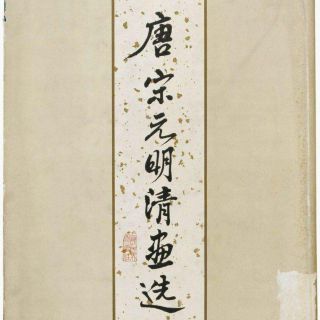 唐宋元明清画选